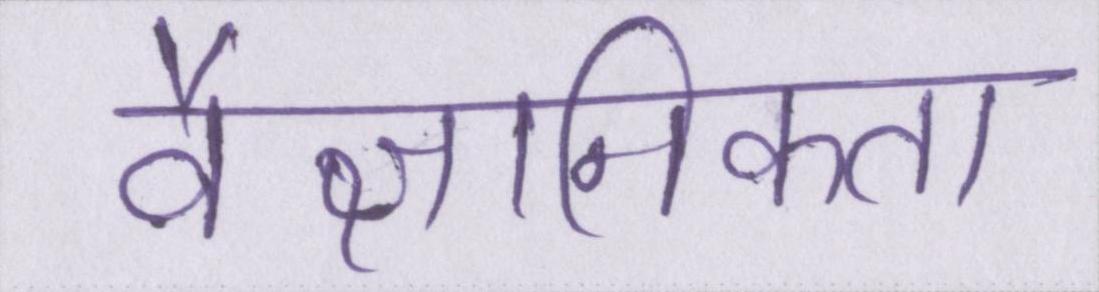 वैज्ञानिकता